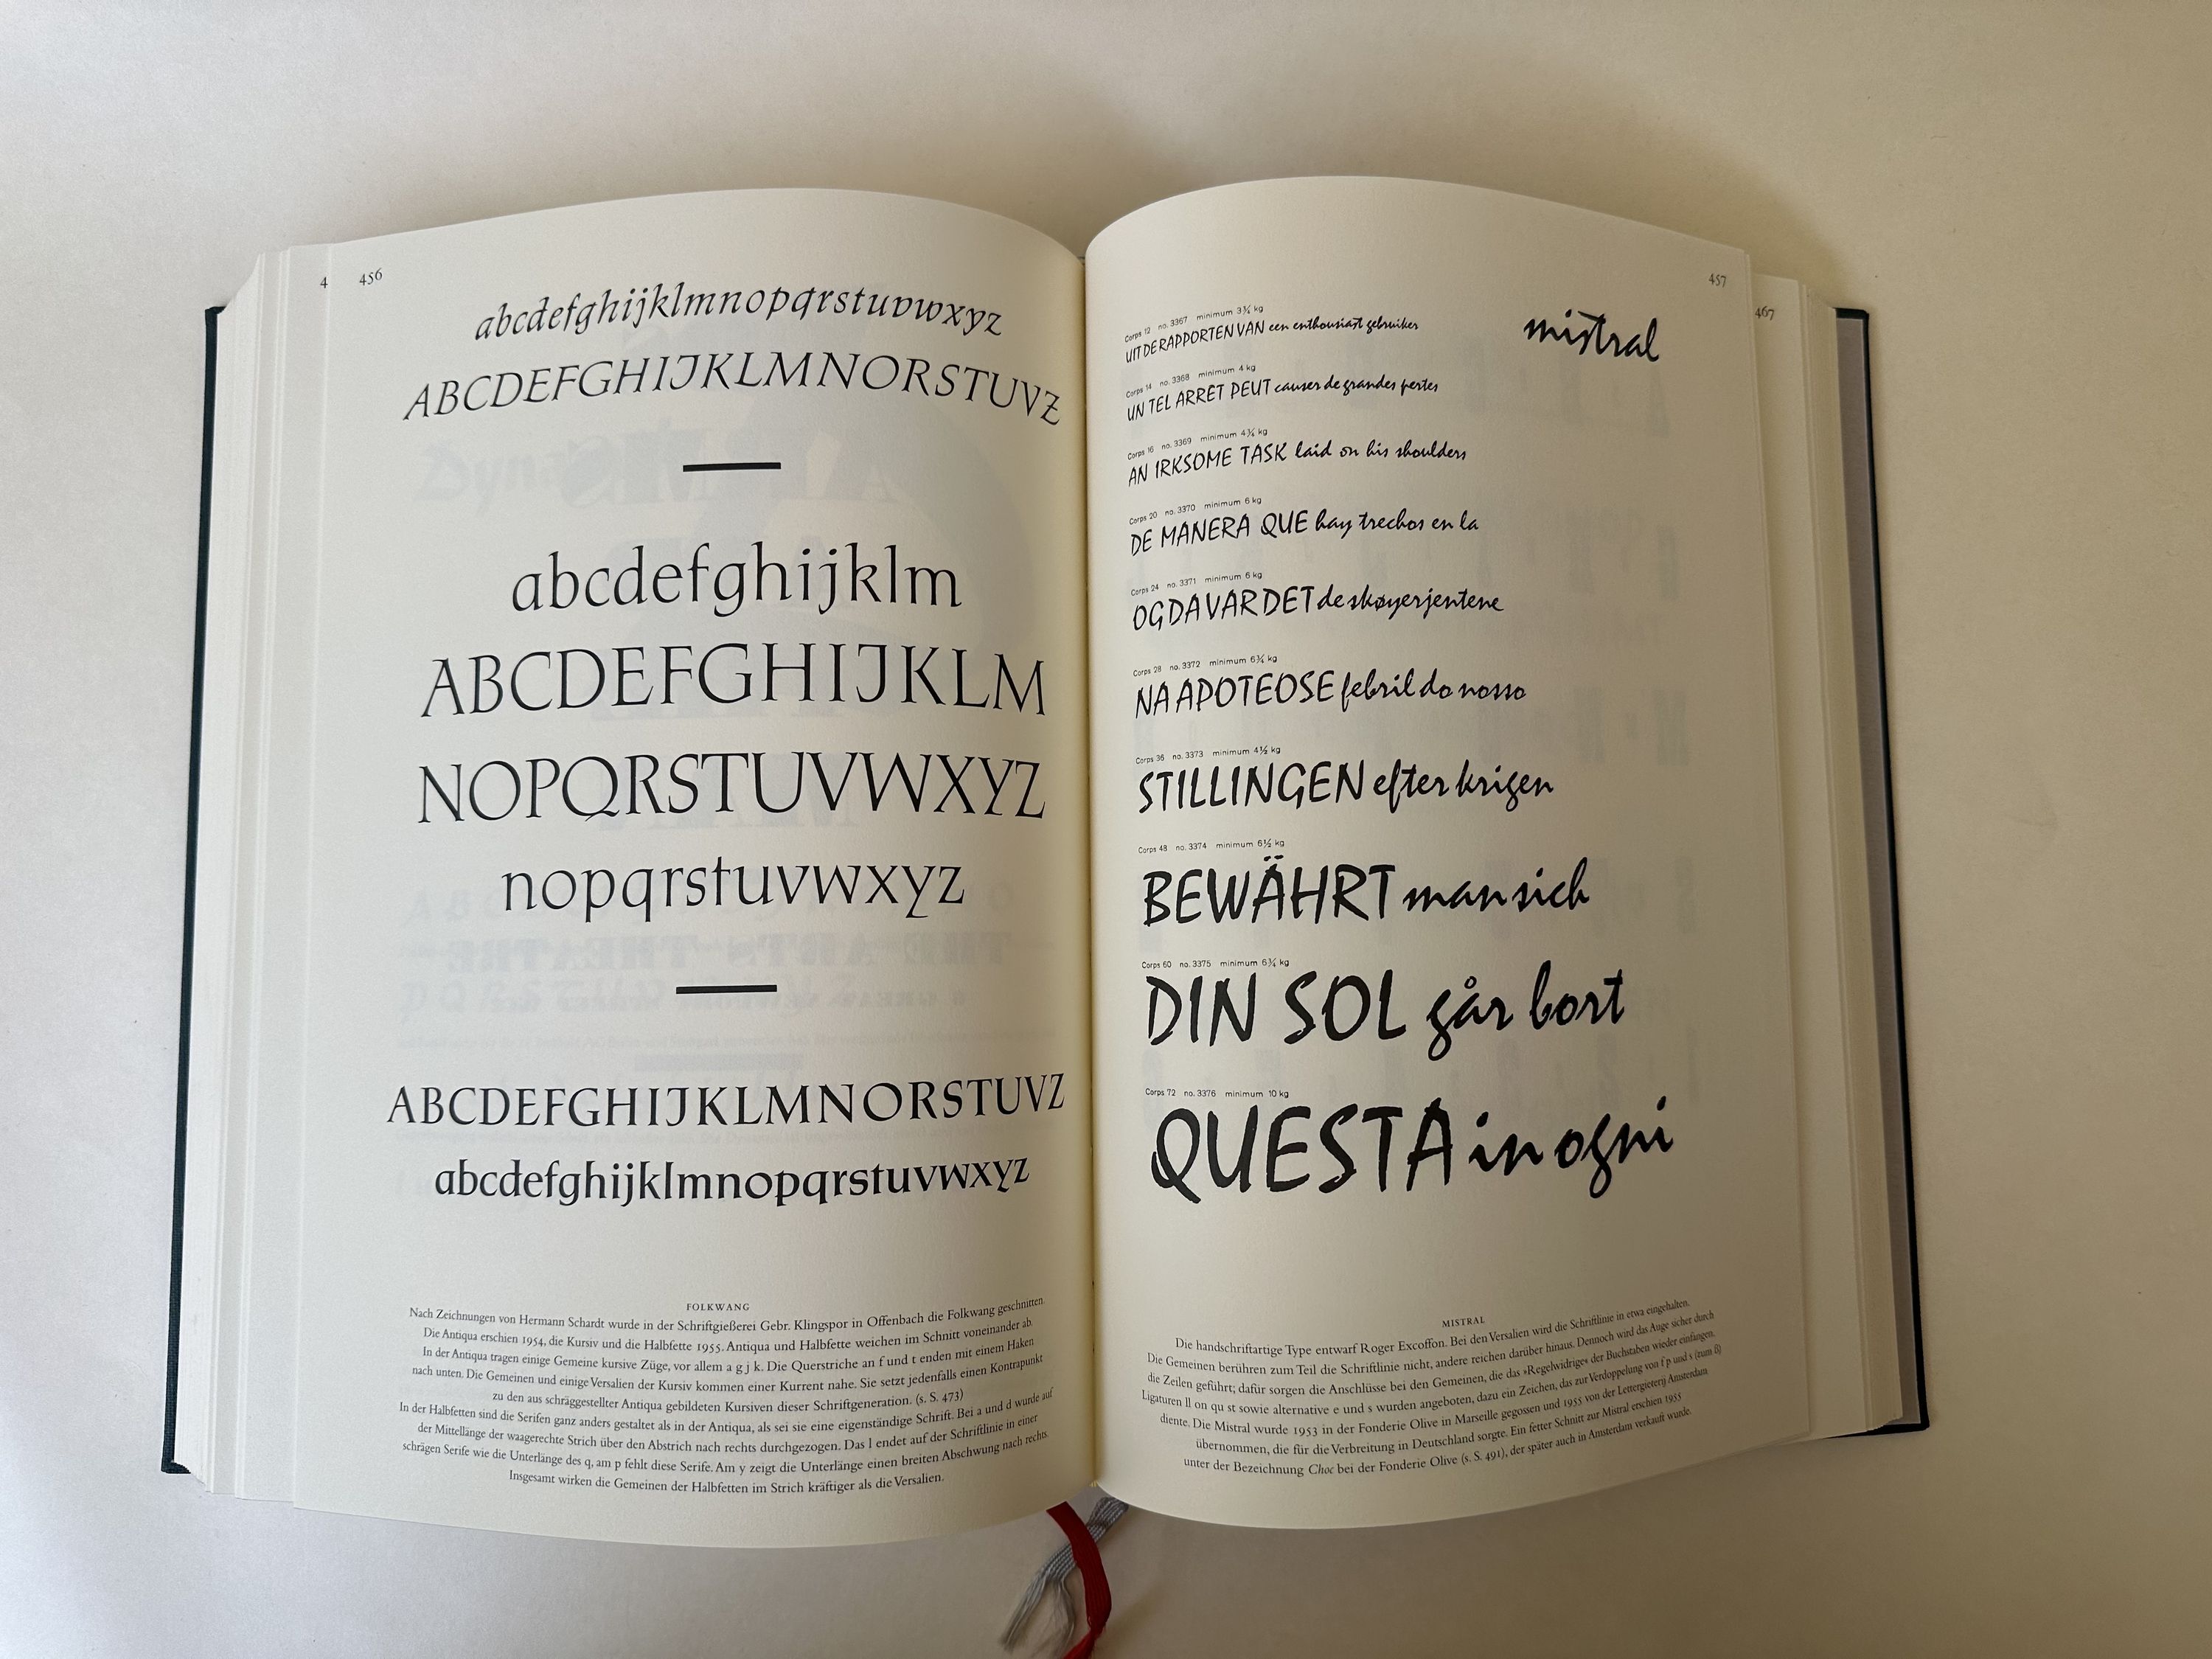 4 456
abcdefghijklmnopqrstuvwxyz
ABCDEFGHIJKLMNORSTUVZ
abcdefghijklm
ABCDEFGHIJKLM
NOPQRSTUVWXYZ
nopqrstuvwxyz
ABCDEFGHIJKLMNORSTUVZ
abcdefghijklmnopqrstuvwxyz
FOLKWANG
Nach Zeichnungen von Hermann Schardt wurde in der Schriftgießerei Gebr. Klingspor in Offenbach die Folkwang geschnitten.
Die Antiqua erschien 1954, die Kursiv und die Halbfette 1955. Antiqua und Halbfette weichen im Schnitt voneinander ab.
In der Antiqua tragen einige Gemeine kursive Züge, vor allem a g j k. Die Querstriche an f und t enden mit einem Haken
nach unten. Die Gemeinen und einige Versalien der Kursiv kommen einer Kurrent nahe. Sie setzt jedenfalls einen Kontrapunkt
zu den aus schräggestellter Antiqua gebildeten Kursiven dieser Schriftgeneration. (s. S. 473)
In der Halbfetten sind die Serifen ganz anders gestaltet als in der Antiqua, als sei sie eine eigenständige Schrift. Bei a und d wurde auf
der Mittellänge der waagerechte Strich über den Abstrich nach rechts durchgezogen. Das l endet auf der Schriftlinie in einer
schrägen Serife wie die Unterlänge des q, am p fehlt diese Serife. Am y zeigt die Unterlänge einen breiten Abschwung nach rechts.
Insgesamt wirken die Gemeinen der Halbfetten im Strich kräftiger als die Versalien.
457
467
mistral
Corps 12 no. 3367 minimum 3¾ kg
UIT DE RAPPORTEN VAN een enthousiast gebruiker
Corps 14 no. 3368 minimum 4 kg
UN TEL ARRET PEUT causer de grandes pertes
Corps 16 no. 3369 minimum 4¾ kg
AN IRKSOME TASK laid on his shoulders
Corps 20 no. 3370 minimum 6 kg
DE MANERA QUE hay trechos en la
Corps 24 no. 3371 minimum 6 kg
OG DA VAR DET de skøyerjentene
Corps 28 no. 3372 minimum 6¾ kg
NA APOTEOSE febril do nosso
Corps 36 no. 3373 minimum 4½ kg
STILLINGEN efter krigen
Corps 48 no. 3374 minimum 6½ kg
BEWÄHRT man sich
Corps 60 no. 3375 minimum 6¾ kg
DIN SOL går bort
Corps 72 no. 3376 minimum 10 kg
QUESTA in ogni
MISTRAL
Die handschriftartige Type entwarf Roger Excoffon. Bei den Versalien wird die Schriftlinie in etwa eingehalten.
Die Gemeinen berühren zum Teil die Schriftlinie nicht, andere reichen darüber hinaus. Dennoch wird das Auge sicher durch
die Zeilen geführt; dafür sorgen die Anschlüsse bei den Gemeinen, die das »Regelwidrige« der Buchstaben wieder einfangen.
Ligaturen ll on qu st sowie alternative e und s wurden angeboten, dazu ein Zeichen, das zur Verdoppelung von f p und s (zum ß)
diente. Die Mistral wurde 1953 in der Fonderie Olive in Marseille gegossen und 1955 von der Lettergieterij Amsterdam
übernommen, die für die Verbreitung in Deutschland sorgte. Ein fetter Schnitt zur Mistral erschien 1955
unter der Bezeichnung Choc bei der Fonderie Olive (s. S. 491), der später auch in Amsterdam verkauft wurde.